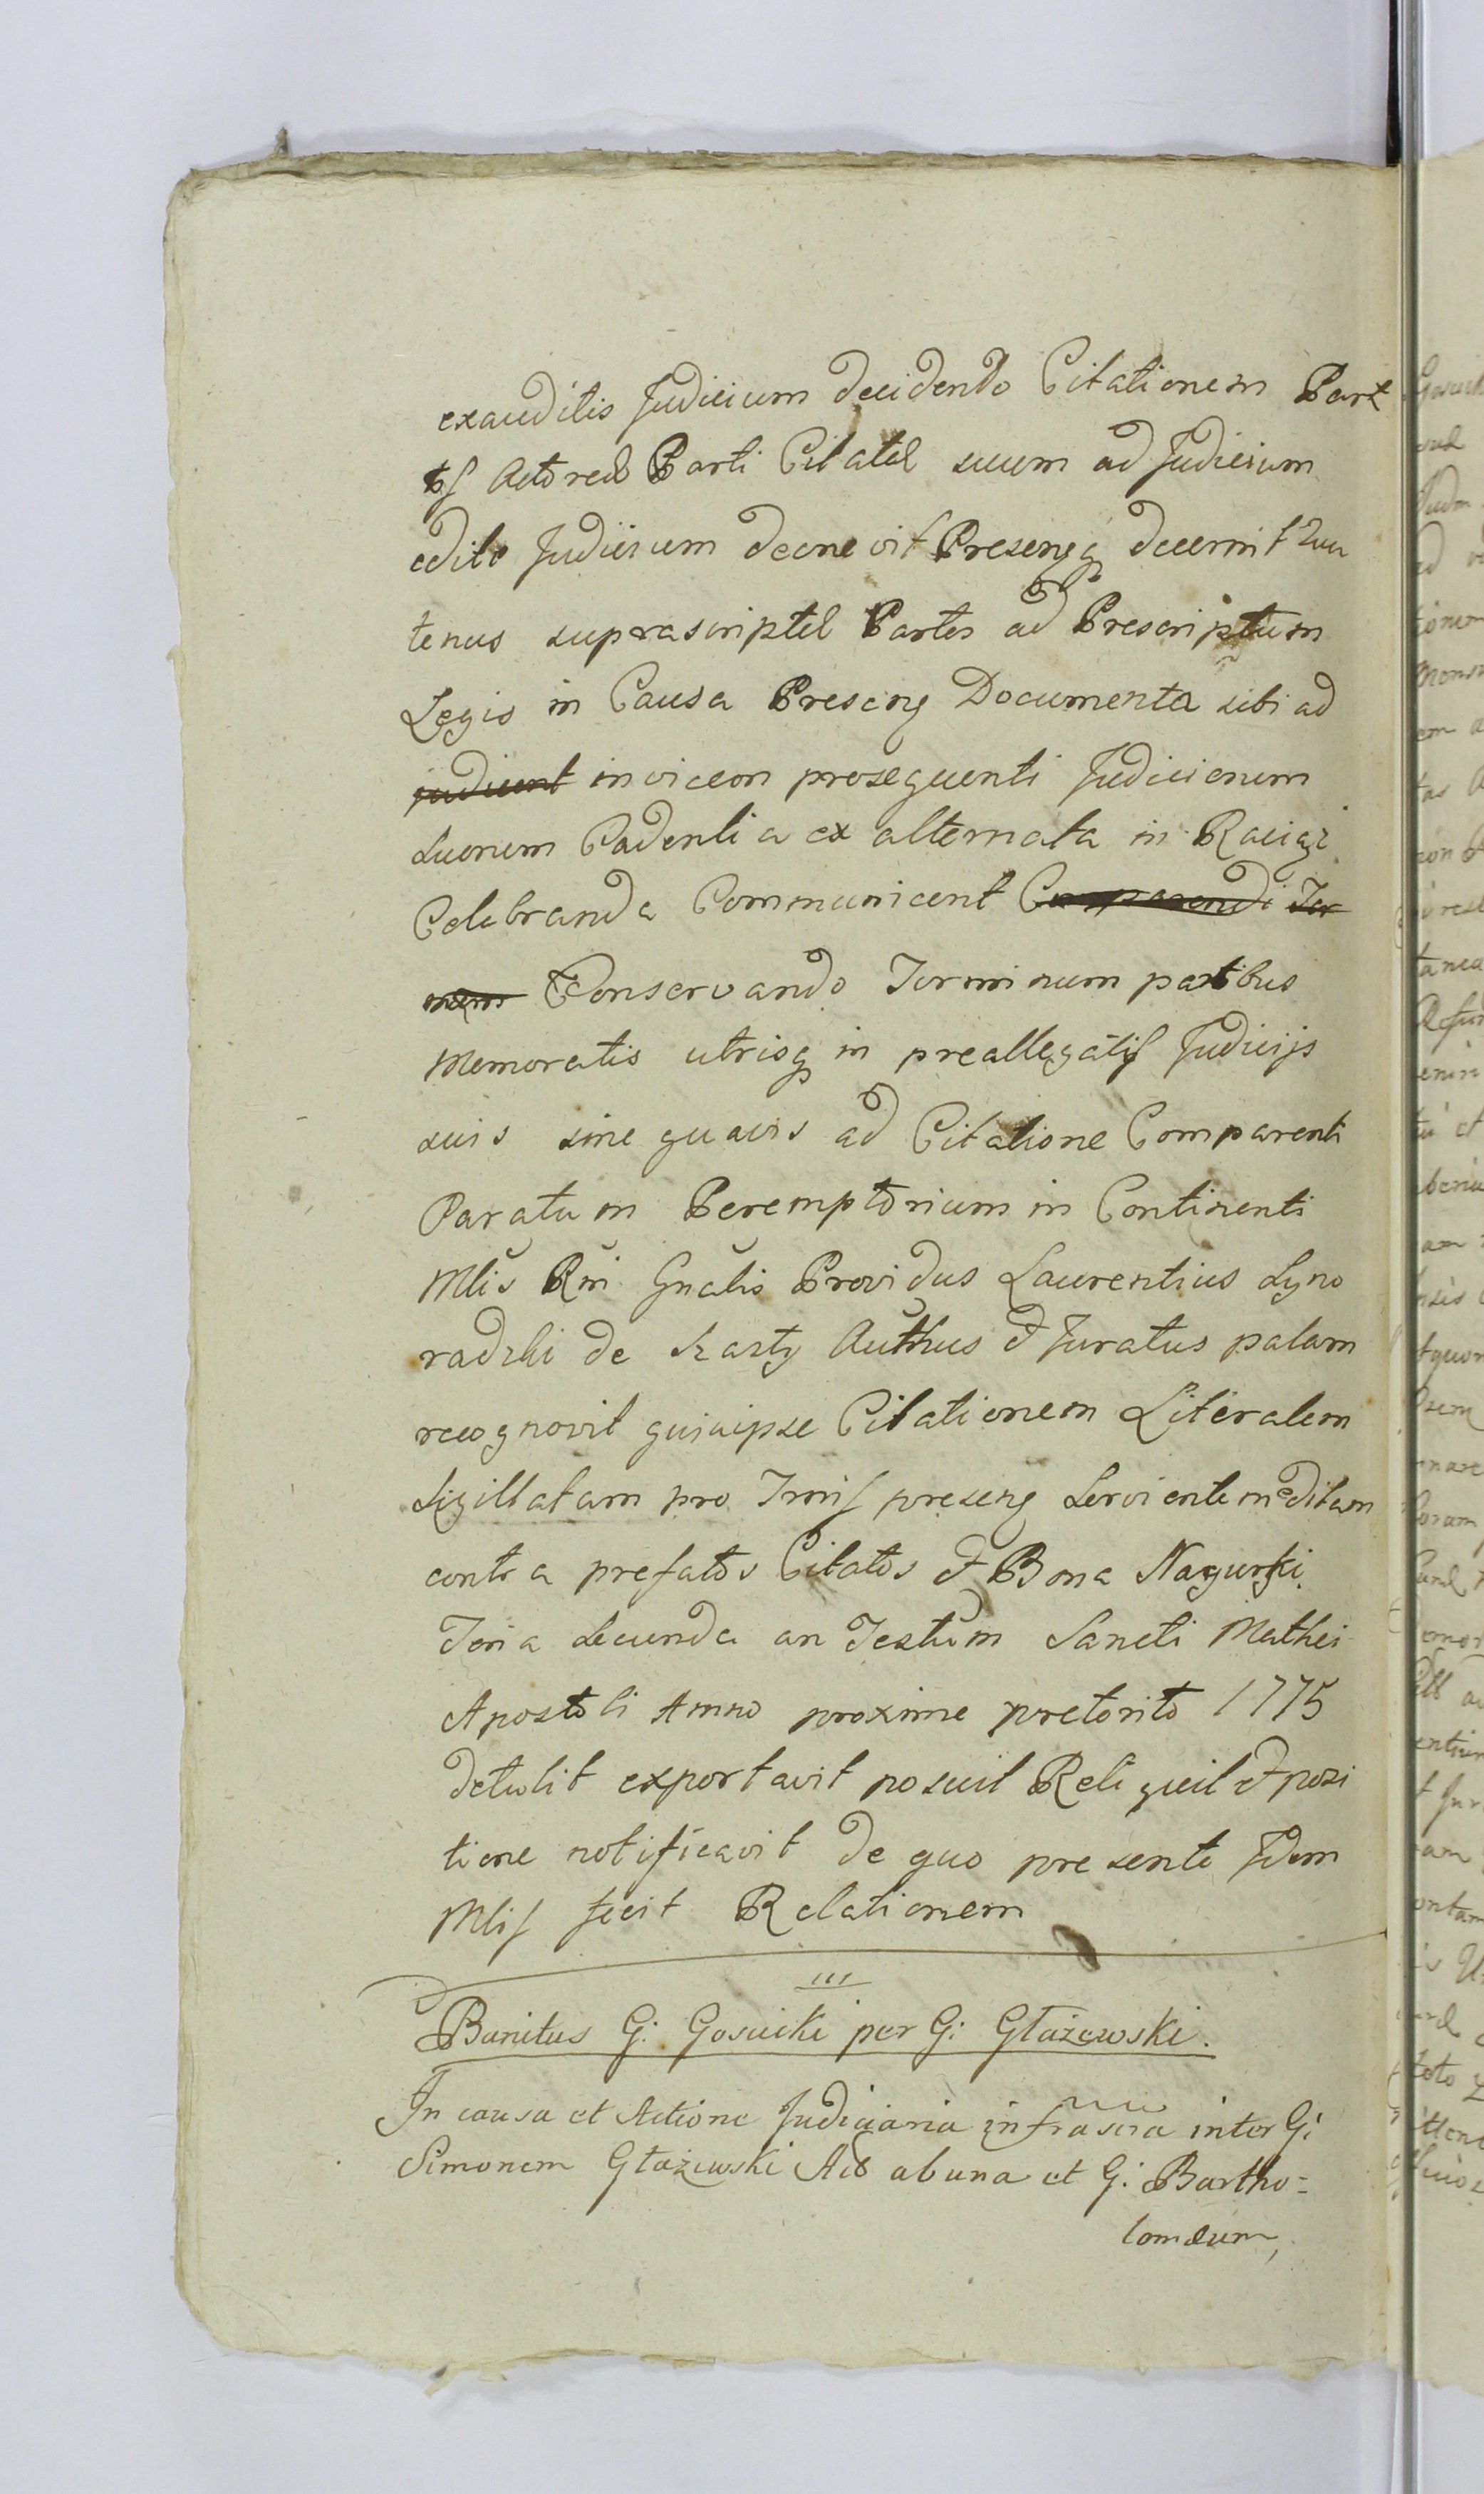 exauditis Judicium decidendo Citationem Part
Actoreæ Parti Citatæ suum ad Judicium
edito Judicium decrevit Presensq decernit qua
tenus suprascriptæ Partes ad Prescriptum
Legis in Causa Preseng Documenta sibi ad
judicent invicem prosequenti Judiciorum
suorum Cadentia ex alternata in Raciąż
Celebranda Communicent Comparendi Ter
minum Conservando Terminum partibus
Memoratis utrisq in preallegatis Judicijs
suis sine quavis ad Citatione Comparenti
Paratum Peremptorium in Continenti
Mlis Rni Gnalis Providus Laurentius Syno
radzki de Auttħus et Juratus palam
recognovit quia ipse Citationem Literalem
Sigillatam pro Trnis preseng Servientem editam
contra prefatos Citatos et Bona Nagurki
Feria Secunda an Festum Sancti Mathei
Apostoli Anno proxime preterito 1775
detulit exportavit posuit Reliquit et posi
tione notificavit de quo presente Idem
Mlis fecit Relationem
Banitus G: Gosiicki per G: Głażewski.
In causa et Actione Judiciaria infrascra inter G:
Simonem Głażewski Act ab una et G: Bartho=
lomæum,